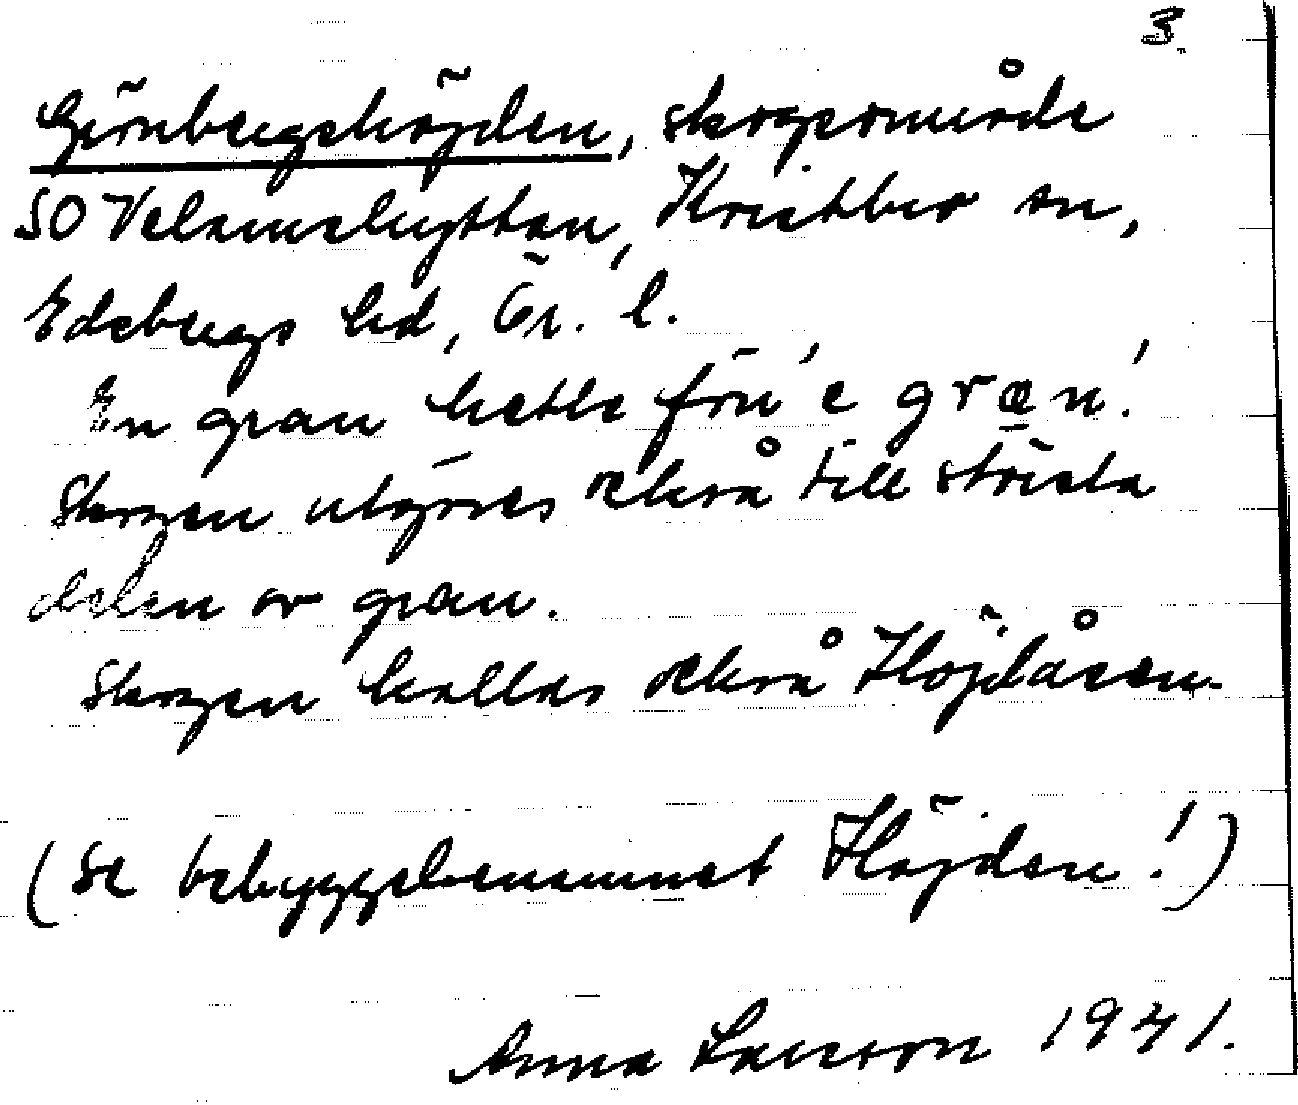 3.
Görnbergshöjden, skogsområde
SO Velamshyttan, Kvistbro sn,
Edsbergs hd, Ör. l.
En gran hette frū´e græn!
Skogen utgöres också till största
delen av gran.
Skogen kallas också Höjdåsen.
(Se bebyggelsenamnet Höjden!)
Anna Larsson 1941.